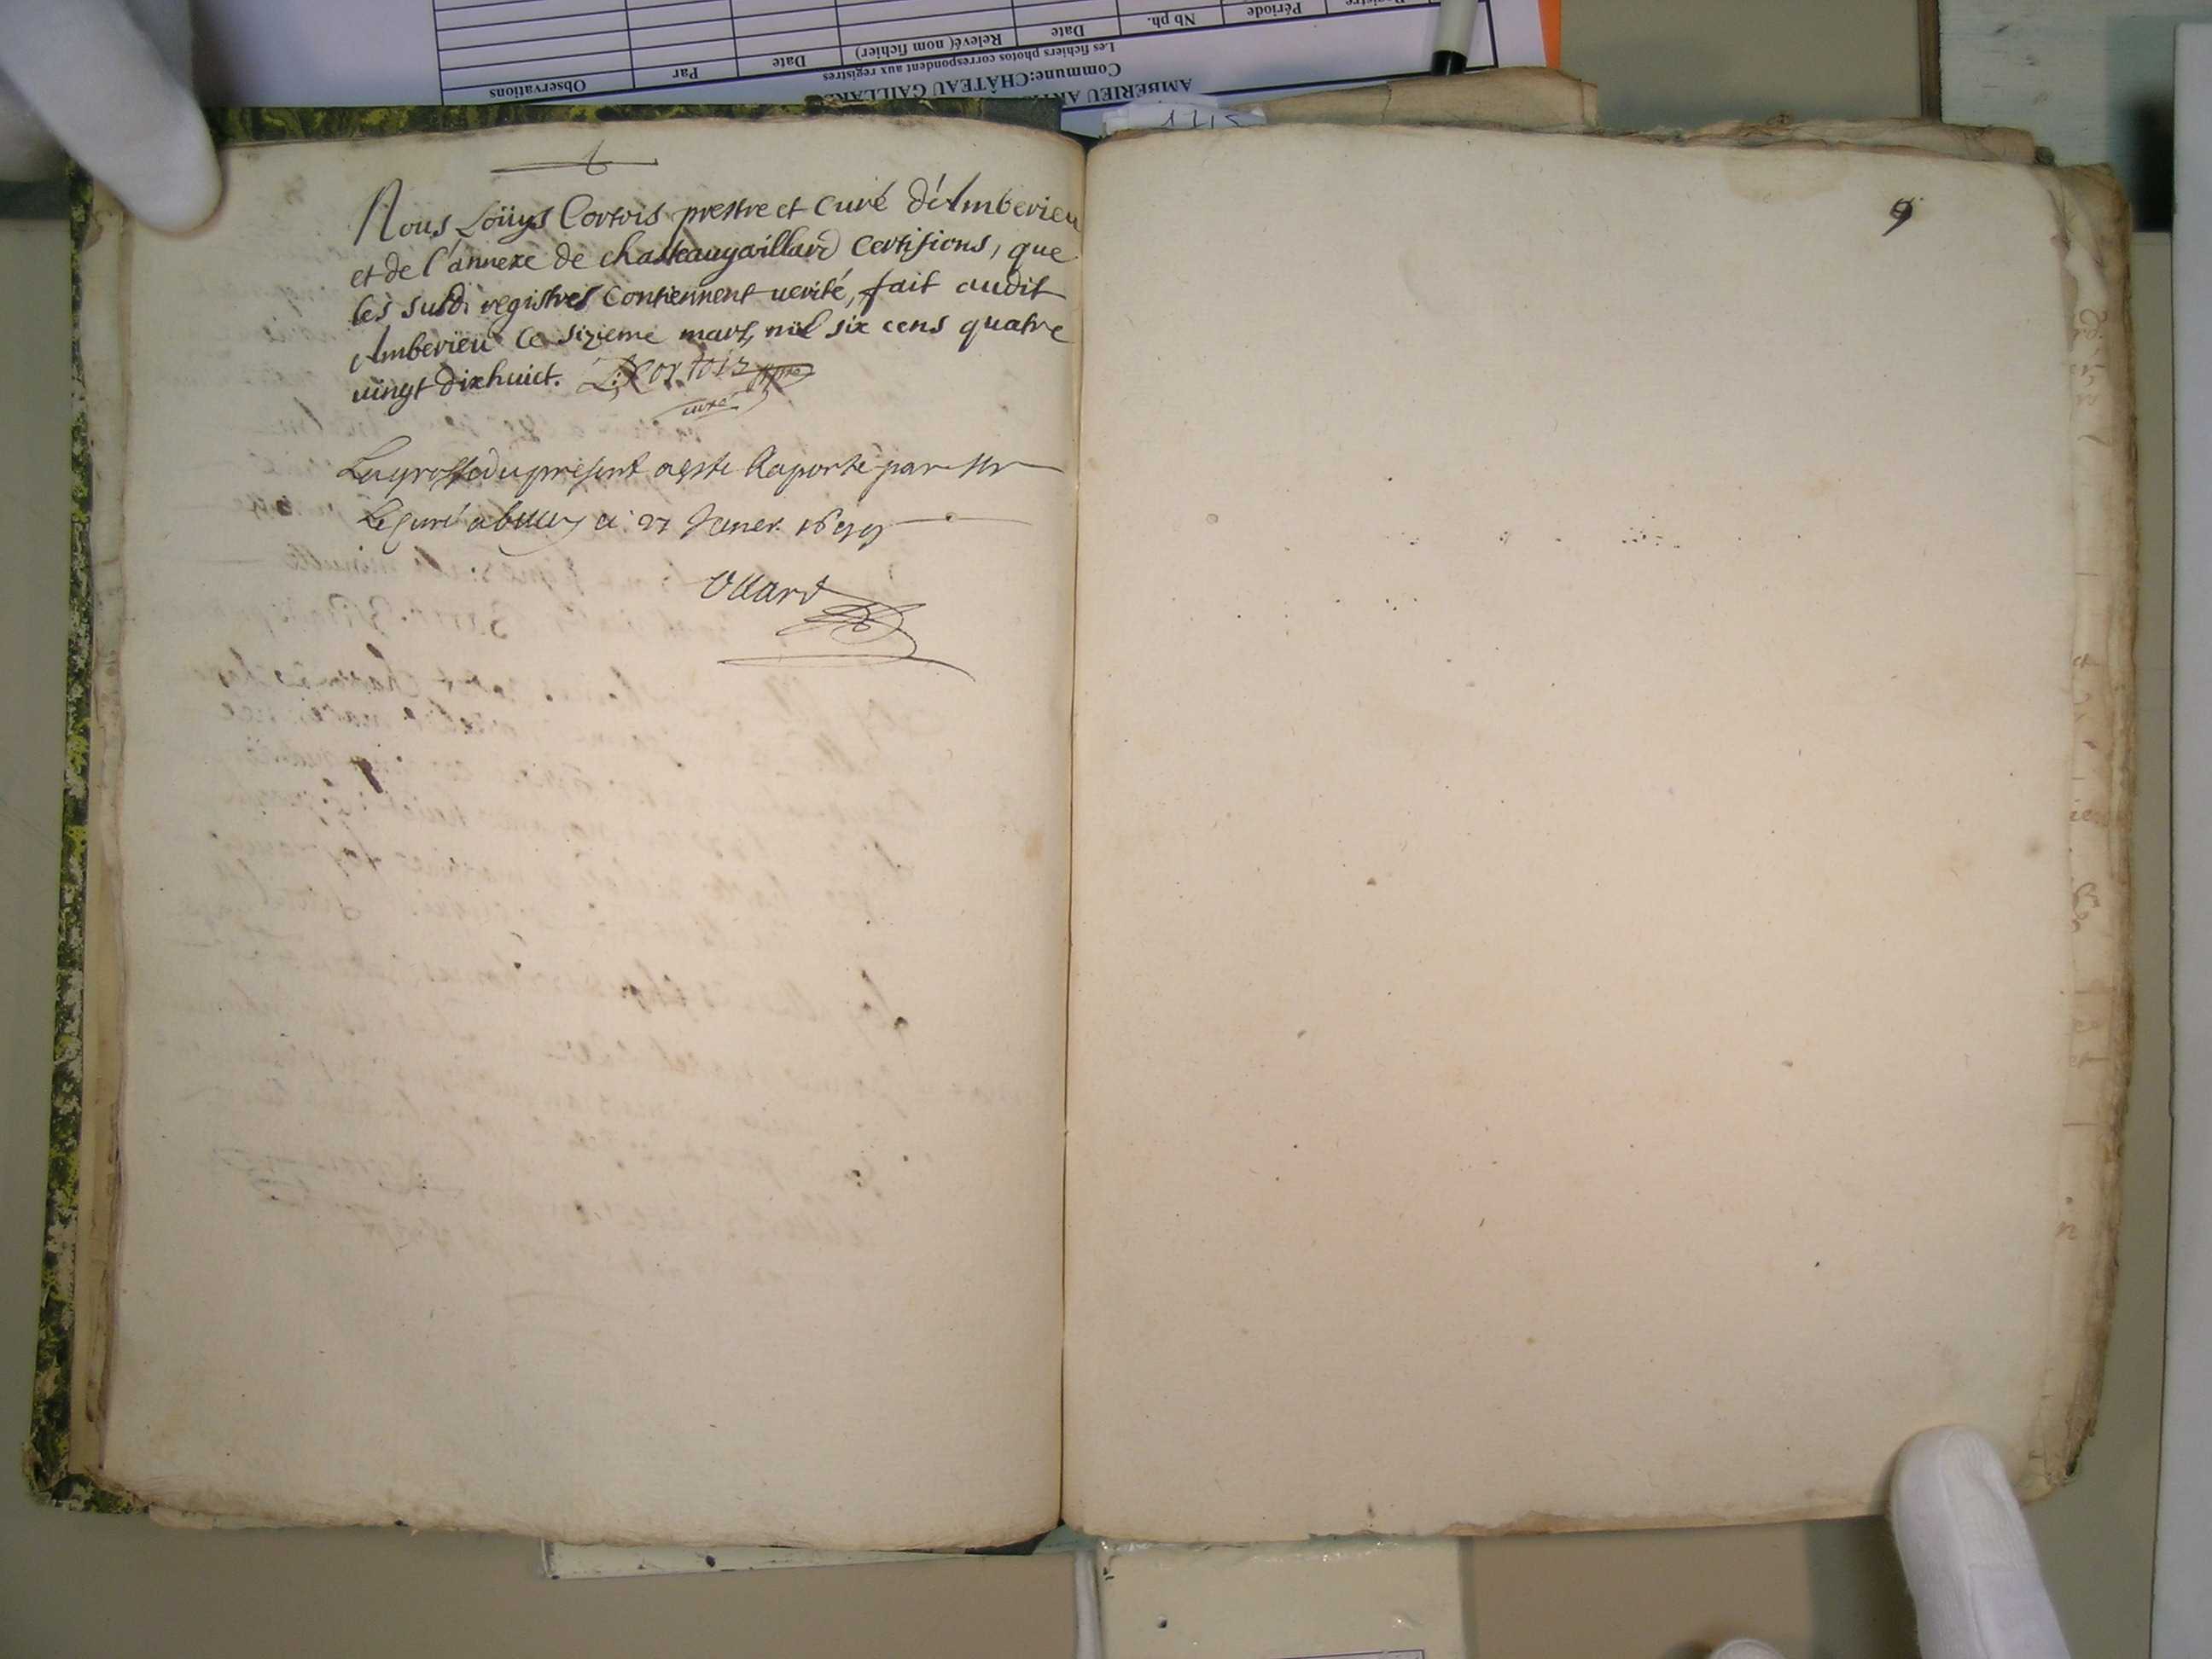 Nous Loüys Cortois prestre et Curé d'Amberieu
et de l'annexe de chasteaugaillard Certifions, que
les susdi registres Contiennent verité, fait audit
Amberieu ce sizieme mars, mil six cens quatre
vingt dixhuict. L: Cortois
curé
La grosse du present a esté Raporté par Mr
Le Curé a ce 27 Janer 1699
Ollard
9
AMBERIEU
Commune:CHÂTEAU GAILLARD
Les fichiers photos correspondent aux registres
Registre Période Nb ph. Date Relevé( nom fichier) Date Par Observations